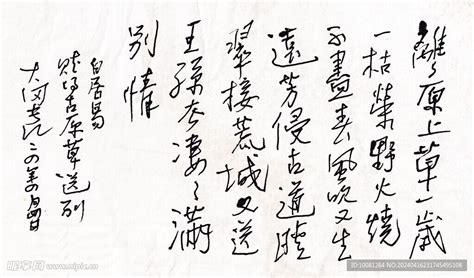 離々原上草一歲
一枯榮野火燒
不盡春風吹又生
遠芳侵古道晴
翠接荒城又送
王孫去凄々滿
別情
白居易
賦得古原草送別
昵图网 www.nipic.com
ID:10081264 NO:20240416231745495108